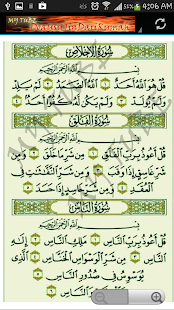 4:06 AM
سُورَةُ الإِخْلَاصِ
بِسْمِ اللَّهِ الرَّحْمَٰنِ الرَّحِيمِ
قُلْ هُوَ اللَّهُ أَحَدٌ ۝ اللَّهُ الصَّمَدُ ۝ لَمْ يَلِدْ
وَلَمْ يُولَدْ ۝ وَلَمْ يَكُنْ لَهُ كُفُوًا أَحَدٌ ۝
سُورَةُ الْفَلَقِ
بِسْمِ اللَّهِ الرَّحْمَٰنِ الرَّحِيمِ
قُلْ أَعُوذُ بِرَبِّ الْفَلَقِ ۝ مِنْ شَرِّ مَا خَلَقَ ۝ وَمِنْ
شَرِّ غَاسِقٍ إِذَا وَقَبَ ۝ وَمِنْ شَرِّ النَّفَّٰثَٰتِ فِي
الْعُقَدِ ۝ وَمِنْ شَرِّ حَاسِدٍ إِذَا حَسَدَ ۝
سُورَةُ النَّاسِ
بِسْمِ اللَّهِ الرَّحْمَٰنِ الرَّحِيمِ
قُلْ أَعُوذُ بِرَبِّ النَّاسِ ۝ مَلِكِ النَّاسِ ۝ إِلَٰهِ
النَّاسِ ۝ مِنْ شَرِّ الْوَسْوَاسِ الْخَنَّاسِ ۝ الَّذِي
يُوَسْوِسُ فِي صُدُورِ النَّاسِ ۝
وَالنَّاسِ